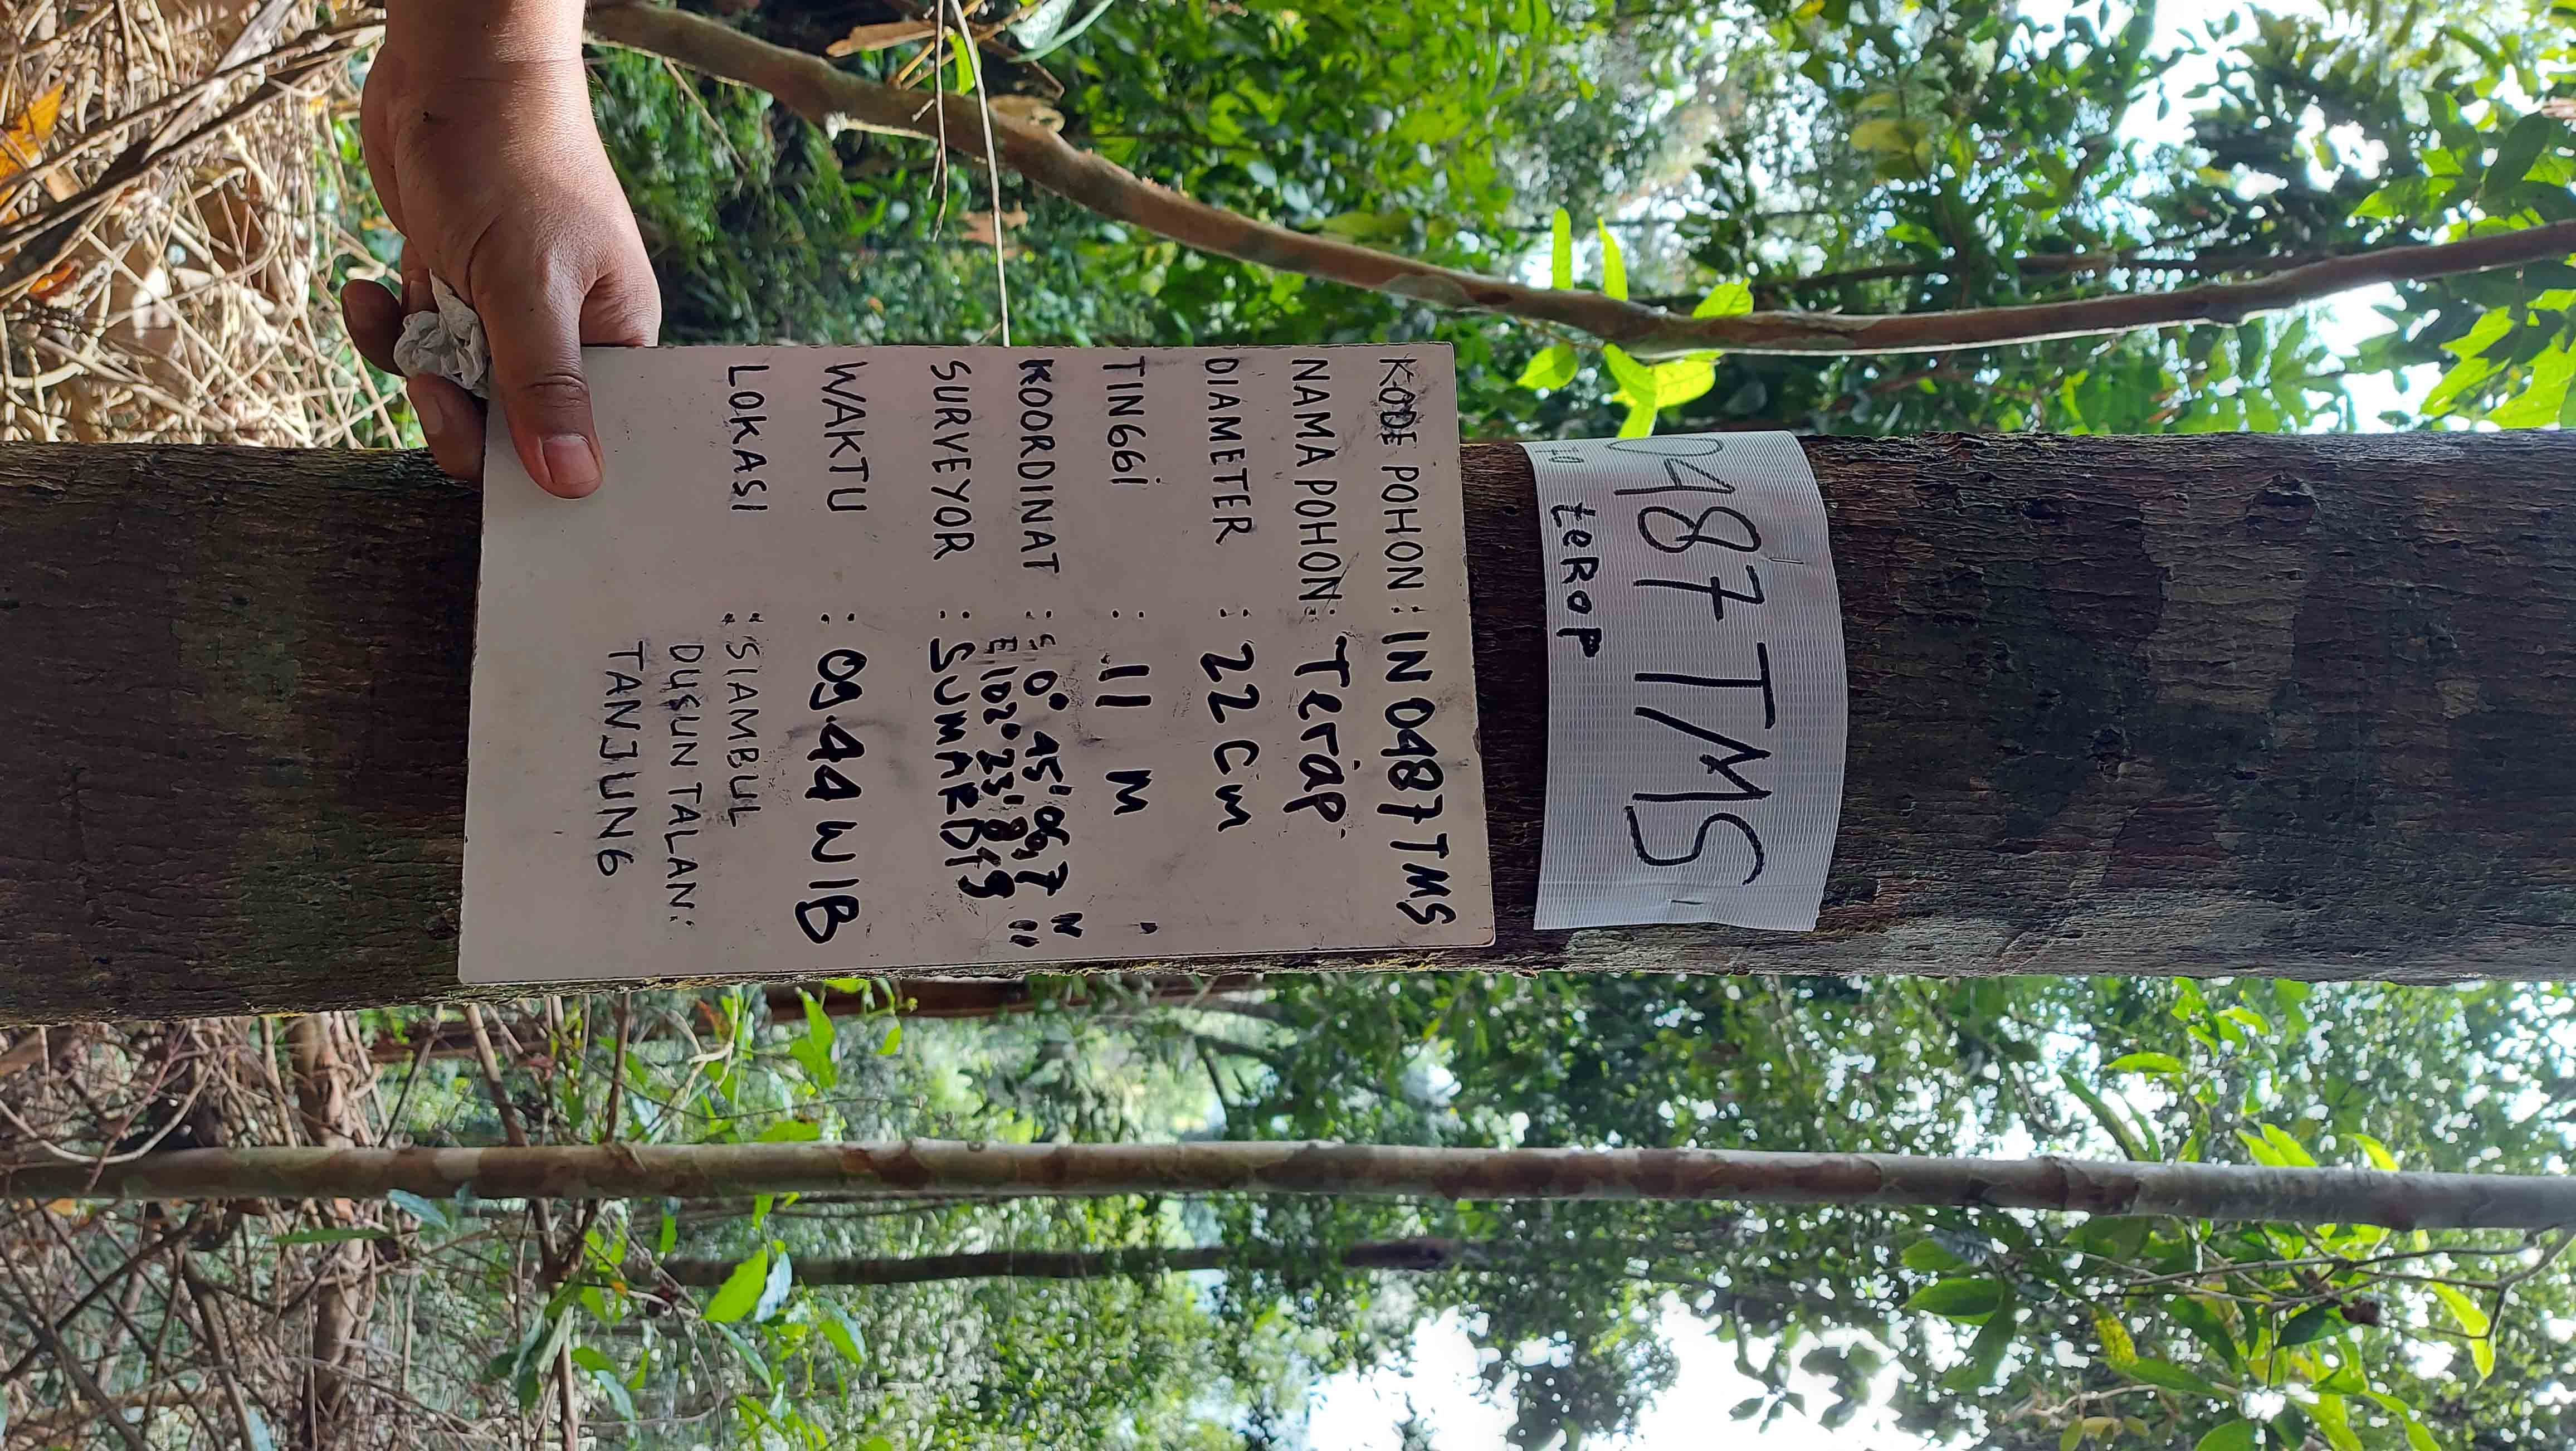 0487 TMS
teRop
KODE POHON : IN 0487 TMS
NAMA POHON : Terap
DIAMETER : 22 Cm
TINGGi : 11 M
KOORDINAT : S 0° 45' 06,7"
E 102° 23' 8,9"
SURVEYOR : SUMARDi
WAKTU : 09.44 WIB
LOKASI : SIAMBUL
DUSUN TALAN:
TANJUNG